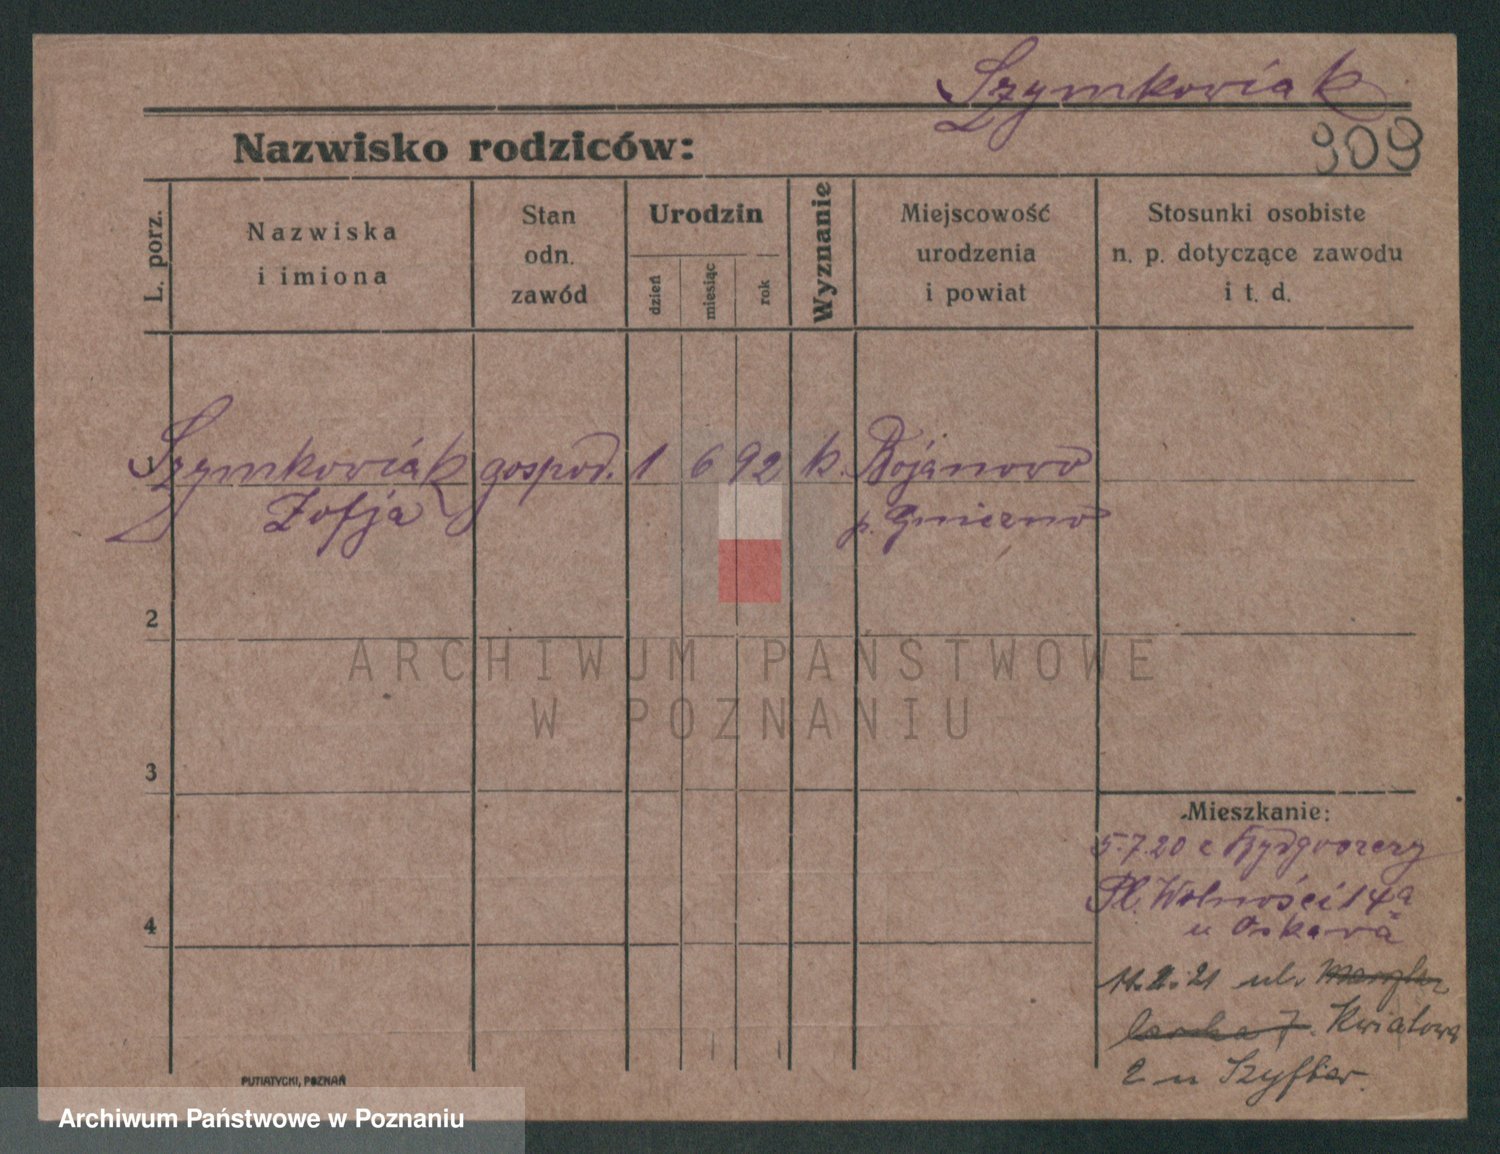 Szymkowiak
Nazwisko rodziców:
909
L. porz.
Nazwiska
i imiona
Stan
odn.
zawód
Urodzin
dzień
miesiąc
rok
Wyznanie
Miejscowość
urodzenia
i powiat
Stosunki osobiste
n. p. dotyczące zawodu
i t. d.
Szymkowiak gospod. 1 6 92 k. Bojanowo
Zofja p. Gniezno
2
3
4
Mieszkanie:
5.7.20 z Bydgoszczy
Pl. Wolności 14a
u Oskara
11.2.21 ul.
7. Kwiatowa
2 u Szyfter.
PUTIATYCKI, POZNAŃ
ARCHIWUM PAŃSTWOWE
W POZNANIU
Archiwum Państwowe w Poznaniu